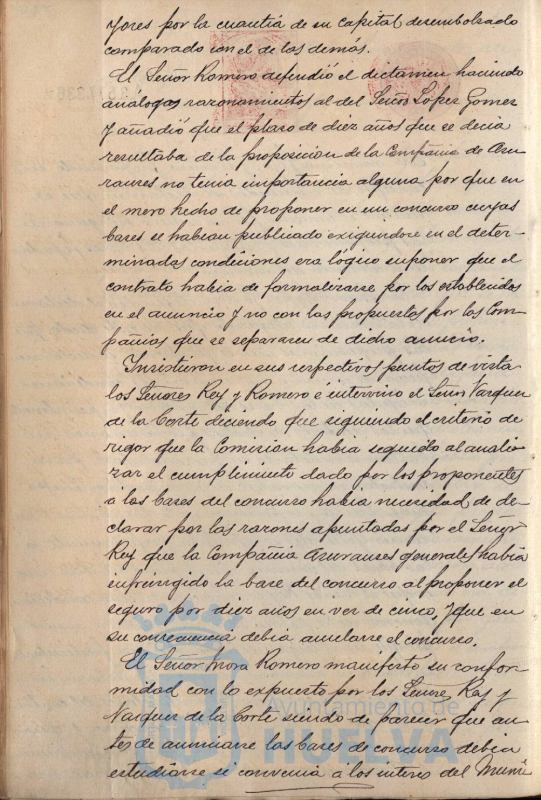 yores por la cuantia de su capital desembolsado
comparado con el de las demás.
El Señor Romero defendió el dictamen haciendo
analogos razonamientos al del Señor López Gomez
y añadió que el plazo de diez años que se decia
resultaba de la proposicion de la Compañia de Asu-
raures no tenia importancia alguna por que en
el mero hecho de proponer en un concurso cuyas
bases se habian publicado exigiendose en el deter-
minadas condiciones era lógico suponer que el
contrato habia de formalizarse por los establecidos
en el anuncio y no con las propuestas por las Com-
pañias que se separaren de dicho anuncio.
Insistieron en sus respectivos puntos de vista
los Señores Rey y Romero é intervino el Señor Vazquez
de la Corte diciendo que siguiendo el criterio de
rigor que la Comision habia seguido al anali-
zar el cumplimiento dado por los proponentes
á las bases del concurso habia necesidad de de-
clarar por las razones apuntadas por el Señor
Rey que la Compañia Asuraures generales habia
infringido la base del concurso al proponer el
seguro por diez años en vez de cinco, y que en
su consecuencia debia anularse el concurso.
El Señor Mora Romero manifestó su confor-
midad con lo expuesto por los Señores Rey y
Vazquez de la Corte siendo de parecer que an-
tes de anunciarse las bases de concurso debia
estudiarse si convenia á los interes del Muni-
Ayuntamiento de
HUELVA